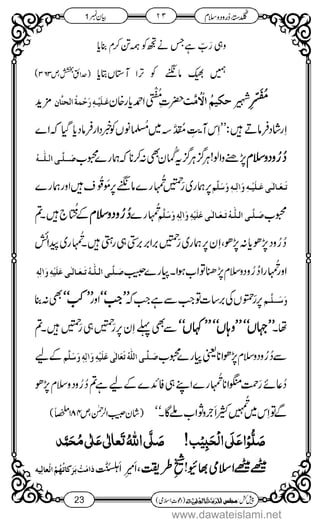 گلدستہ دُرود و سلام ۲۳ بیان نمبر ۹
وہی رَبّ ہے جس نے تجھ کو ہَمہ تَن کرم بنایا
ہمیں بھیک مانگنے کو ترا آستاں بتایا (حدائقِ بخشش ص ۳۶۳)
مُفَسِّرِ شہیر حکیمُ الْاُمَّت حضرتِ مفتی احمد یار خان عَلَیْہِ رَحْمَۃُ الْحَنَّان مزید
ارشاد فرماتے ہیں: ’’اس آیتِ مُقدّسہ میں مُسلمانوں کو خبردار فرمادیا گیا کہ اے
دُرُود و سلام پڑھنے والو! ہرگز ہرگز یہ گُمان بھی نہ کرنا کہ ہمارے محبوب صَلَّی اللہُ
تَعَالٰی عَلَیْہِ وَاٰلِہٖ وَسَلَّم پر ہماری رَحمتیں تمہارے مانگنے پر مَوقوف ہیں اور ہمارے
محبوب صَلَّی اللہُ تَعَالٰی عَلَیْہِ وَاٰلِہٖ وَسَلَّم تمہارے دُرُود و سلام کے محتاج ہیں۔ تم
دُرُود پڑھو یا نہ پڑھو، اِن پر ہماری رَحمتیں برابر برستی ہی رہتی ہیں۔ تمہاری پیدائش
اور تمہارا دُرُود و سلام پڑھنا تو اب ہوا۔ پیارے حبیب صَلَّی اللہُ تَعَالٰی عَلَیْہِ وَاٰلِہٖ
وَسَلَّم پر رَحمتوں کی برسات تو جب سے ہے جبکہ ’’جب‘‘ اور ’’کب‘‘ بھی نہ بنا
تھا۔ ’’جہاں‘‘ ’’وہاں‘‘ ’’کہاں‘‘ سے بھی پہلے اِن پر رحمتیں ہی رحمتیں ہیں۔ تم
سے دُرُود و سلام پڑھوانا یعنی پیارے محبوب صَلَّی اللہُ تَعَالٰی عَلَیْہِ وَاٰلِہٖ وَسَلَّم کے لیے
دُعائے رَحمت منگوانا تمہارے اپنے ہی فائدے کے لیے ہے تم دُرُود و سلام پڑھو
گے تو اس میں تمہیں کثیر اَجر و ثواب ملے گا۔‘‘ (شانِ حبیب الرحمٰن ص ۱۸۴ ملخصاً)
صَلُّوْا عَلَی الْحَبِیْب! صَلَّی اللہُ تَعَالٰی عَلٰی مُحَمَّد
میٹھے میٹھے اسلامی بھائیو! شیخِ طریقت، امیرِ اَہلسُنَّت دَامَتْ بَرَکَاتُہُمُ الْعَالِیَہ
23
www.dawateislami.net